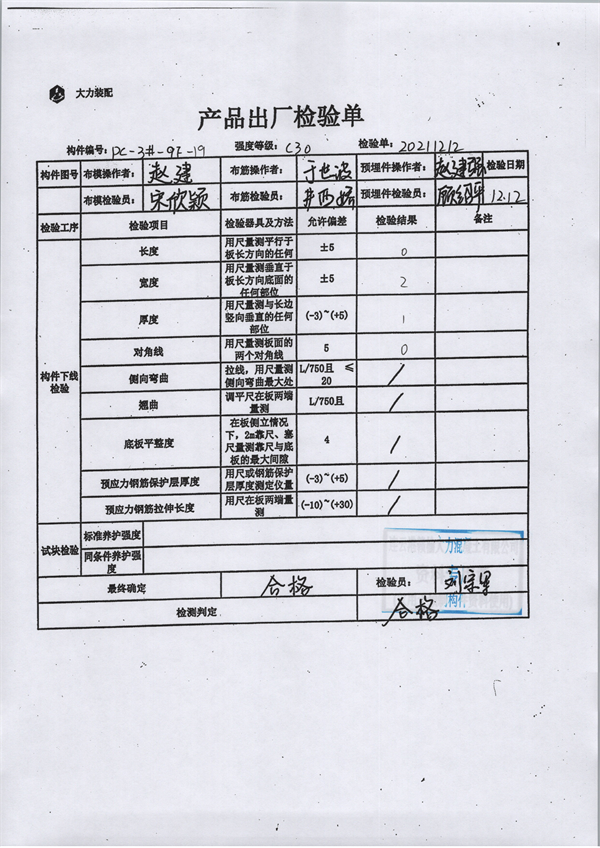 大力装配
产品出厂检验单
构件编号: PC-3#-9F-19 强度等级: C30 检验单: 20211212
构件图号 布模操作者: 赵建 布筋操作者: 于世波 预埋件操作者: 赵建强 检验日期
布模检验员: 宋欣颖 布筋检验员: 预埋件检验员: 12.12
检验工序 检验项目 检验器具及方法 允许偏差 检验结果 备注
构件下线检验
长度 用尺量测平行于板长方向的任何 ±5 0
宽度 用尺量测垂直于板长方向底面的任何部位 ±5 2
厚度 用尺量测与长边竖向垂直的任何部位 (-3)~(+5) 1
对角线 用尺量测板面的两个对角线 5 0
侧向弯曲 拉线,用尺量测侧向弯曲最大处 L/750且 ≤20 /
翘曲 调平尺在板两端量测 L/750且 /
底板平整度 在板侧立情况下,2m靠尺、塞尺量测靠尺与底板的最大间隙 4 /
预应力钢筋保护层厚度 用尺或钢筋保护层厚度测定仪量 (-3)~(+5) /
预应力钢筋拉伸长度 用尺在板两端量测 (-10)~(+30) /
试块检验 标准养护强度
同条件养护强度
最终确定 合格 检验员:
检测判定 合格
力混
构件